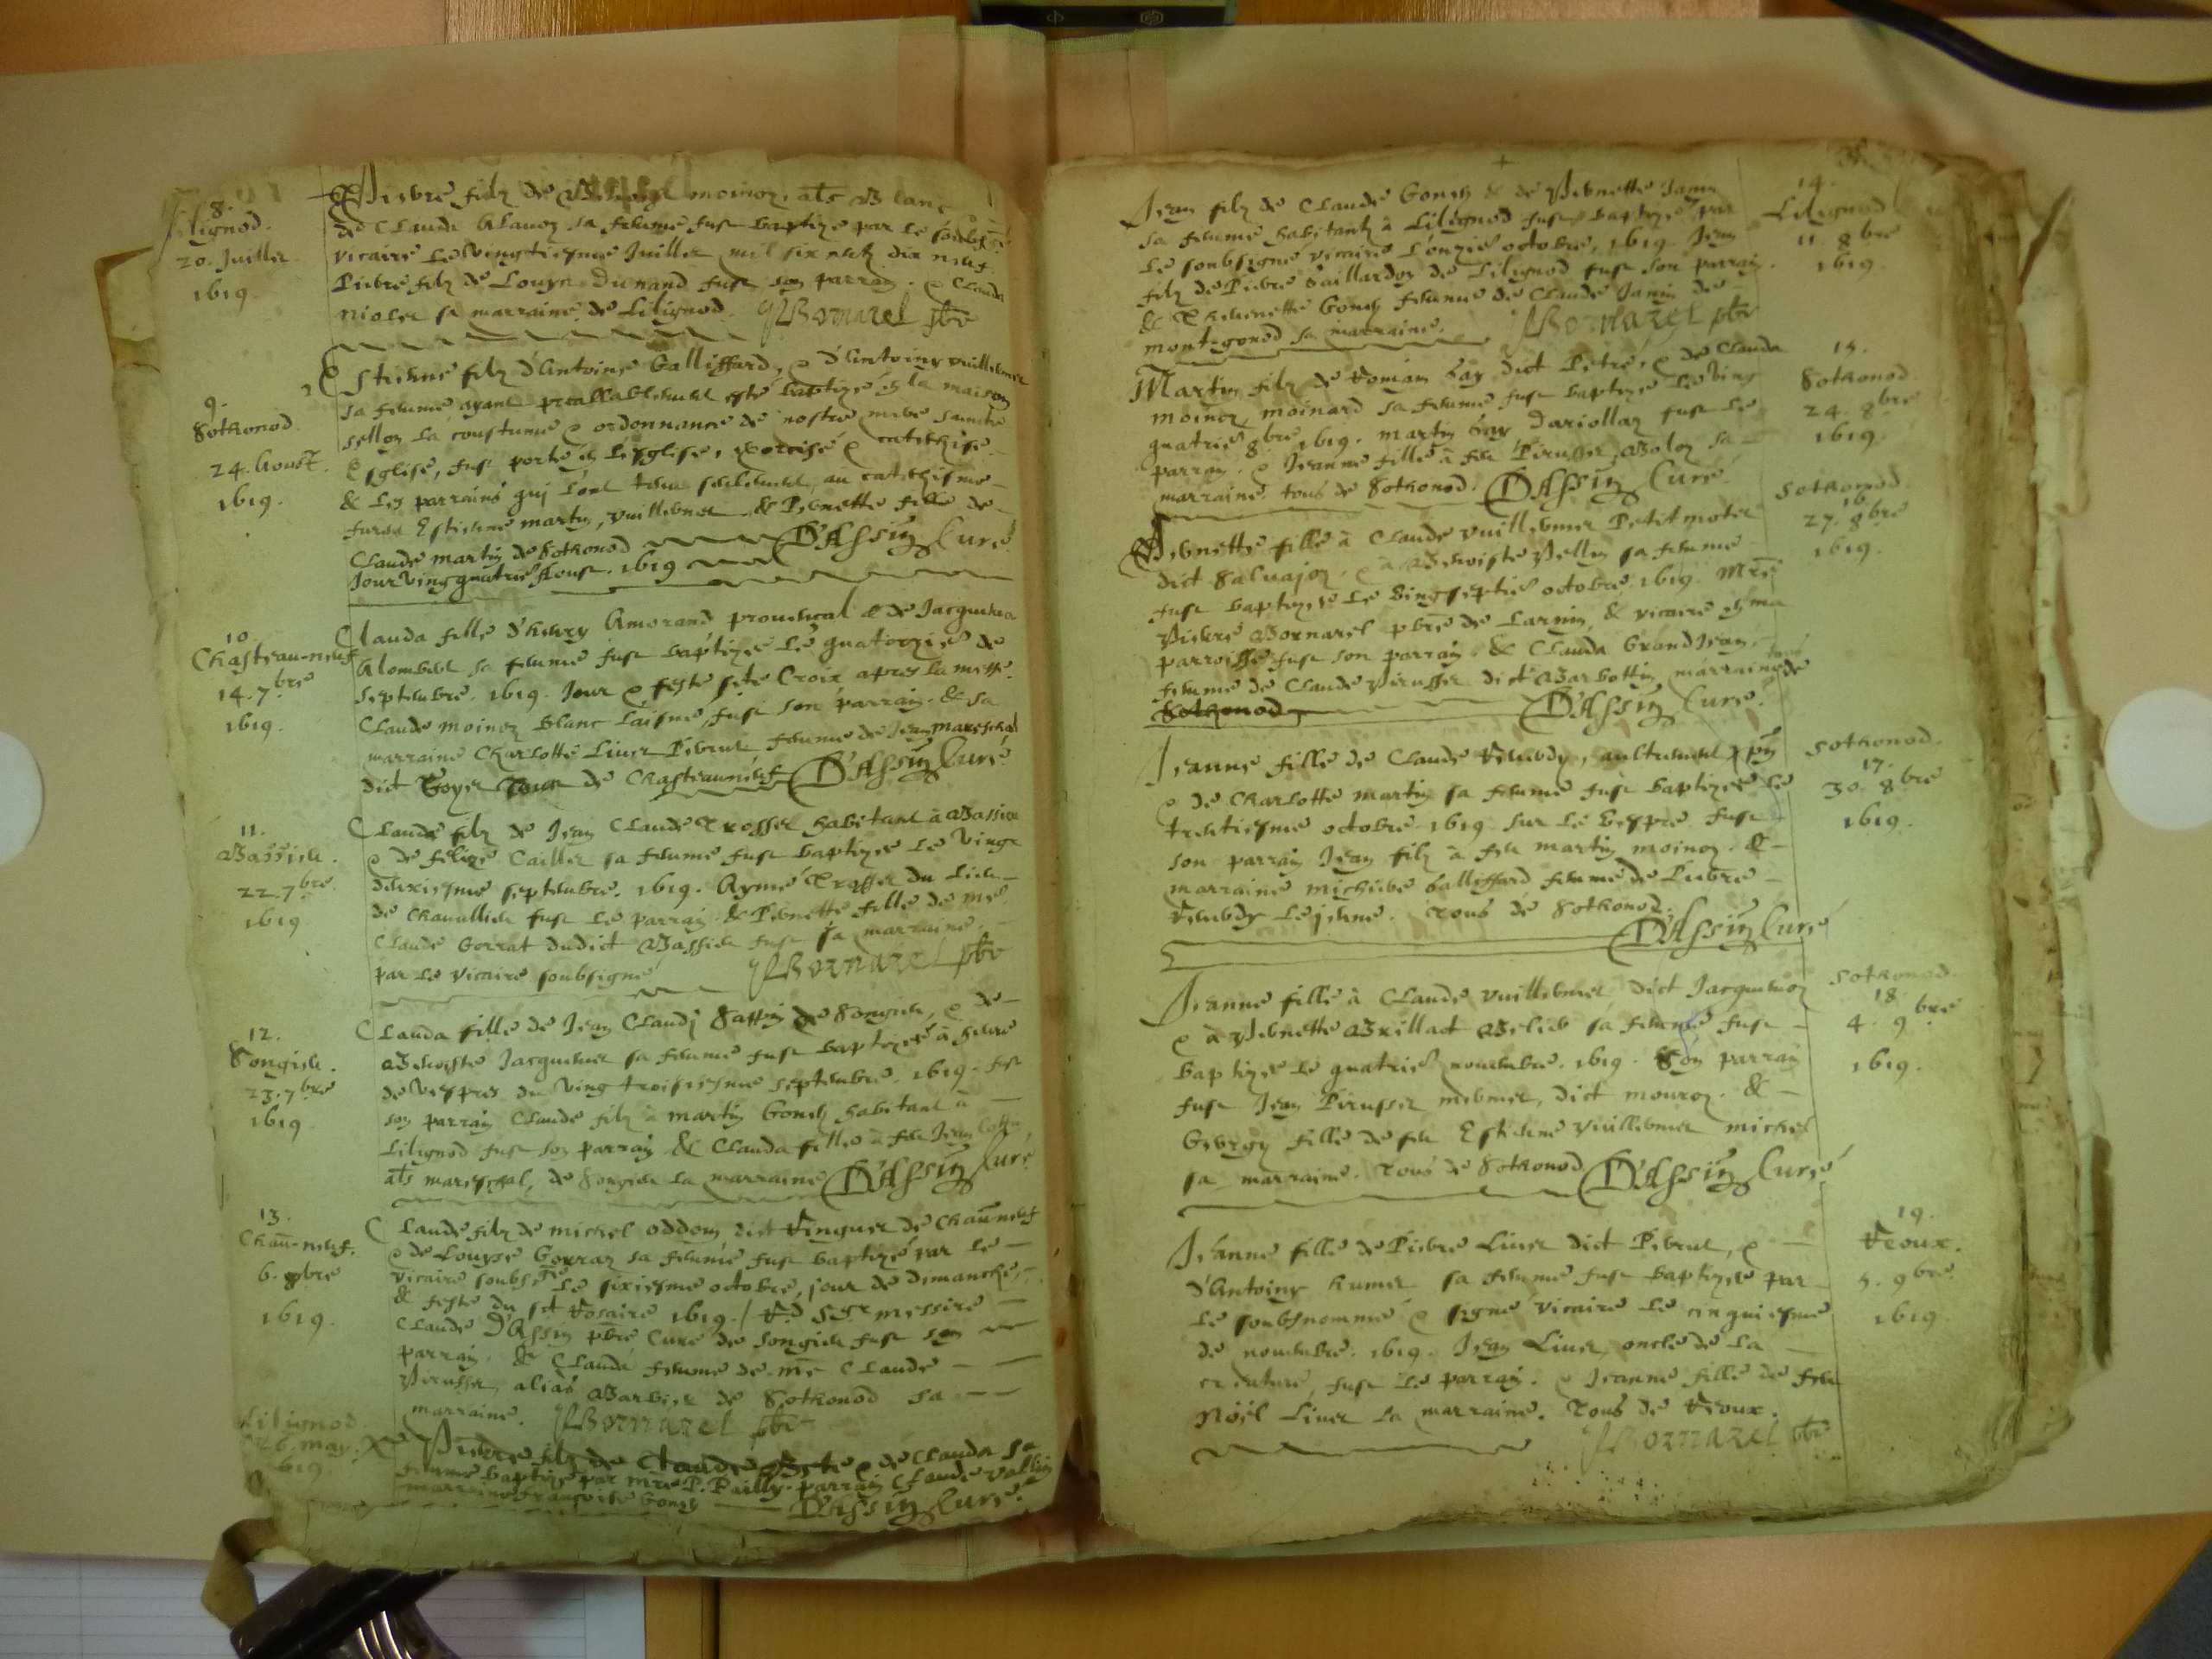 8.
Lilignod.
20. Juillet
1619.
Pierre filz de moinoz, als Blanc
de Clauda sa femme fust baptize par le soubsigné
vicaire le vingtiesme Juillet mil six centz dix neuf.
Pierre filz de Louys Dunand fust son parrain. & Clauda
niolet sa marraine de Lilignod. Bornarel pbre
9.
Sothonod.
24. Aoust.
1619.
Estienne filz d'Antoine Galliffard, & d'Antoine vuillermet
sa femme ayant preallablement esté baptizé en la maison
sellon la coustume & ordonnance de nostre mere saincte
Esglise, fust porté en l'esglise, exorcisé & catechisé
& les parrains qui l'ont tenu seulement au catechisme
furent Estienne martin, vuillermet & Pernette fille de
Claude martin de Sothonod D'Assin Curé.
Jour vingquatrie Aoust. 1619
10.
Chasteau-neuf
14. 7bre
1619.
Clauda fille d'henry Amorand provencal & de Jacquema
sa femme fust baptizee le quatorzie de
septembre. 1619. Jour & feste ste Croix apres la messe.
Claude moinoz blanc laisné, fust son parrain. & sa
marraine Charlotte Livet Pervet femme de Jean mareschal
dict Goyet tous de Chasteauneuf D'Assin Curé
11.
Bassieu.
22. 7bre.
1619
Claude filz de Jean Claude Trosset habitant à Bassieu
& de felize Caillet sa femme fust baptizee le vingt
deuxiesme septembre. 1619. Aymé Trosset du lieu
de Chavallieu fust le parrain & Pernette fille de me
Claude Gorrat dudict Bassieu fust sa marraine.
par le vicaire soubsigné Bornarel pbre
12.
Songieu.
23. 7bre
1619
Clauda fille de Jean Claudj Sappin de Songieu, & de
Benoiste Jacquemet sa femme fust baptizee à heure
de vespres du ving troisiesme septembre. 1619. fut
son parrain Claude filz à martin Gonet habitant à
Lilignod fust son parrain & Clauda fille à feu Jean
als mareschal, de Songieu la marraine D'Assin Curé
13.
Chau-neuf.
6. 8bre
1619.
Claude filz de michel oddom dict Ringuet de Chauneuf
& de Louyse Gorraz sa femme fust baptizé par le
vicaire soubsigé le sixiesme octobre, jour de dimanche,
& feste du st Rosaire 1619. / Rd Sgr messire
Claude D'Assin pbre Curé de Songieu fust son
parrain. & Clauda femme de me Claude
Perusset, alias Barbier de Sothonod sa
marraine. Bornarel pbre
Lilignod
26. may.
1619
Pierre filz de Claude & de Clauda sa
femme baptizé par mre P. Bailly. parrain Claude
marraine Francoise Gonet D'Assin Curé.
Jean filz de Claude Gonet & de Pernette Janin
sa femme habitantz à Lilignod fust baptizé par
le soubsigné vicaire l'onzie octobre, 1619. Jean
filz de Pierre Gaillardon de Lilignod fust son parrain.
& Thevenette Gonet femme de Claude Janin de
montgonod sa marraine. Bornarel pbre
14.
Lilignod
11. 8bre
1619.
Martin filz de Romain Gay dict Petre, & de Clauda
moinoz moinard sa femme fust baptizé le ving
quatrie 8bre 1619. martin Gay Dariollaz fust le
parrain. & Jeanne fille à feu Perusset Bolon sa
marraine tous de Sothonod. D'Assin Curé
15.
Sothonod.
24. 8bre
1619.
Pernette fille à Claude vuillermet Petitmotet
dict Salvajoz, & à Benoiste Pellin sa femme
fust baptizee le vingseptie octobre. 1619. Mre
Pierre Bornarel pbre de Larnin, & vicaire en ma
parroisse fust son parrain, & Clauda Grand Jean
femme de Claude Perusset dict Barbottin marraine tous de
Sothonod D'Assin Curé.
Sothonod.
16.
27. 8bre
1619.
Jeanne fille de Claude Remvdy, aultrement
& de Charlotte martin sa femme fust baptizee le
trentiesme octobre 1619 sur le vespre fust
son parrain Jean filz à feu martin moinoz. &
marraine michiere Galliffard femme de Pierre
Remvdy le jeune. Tous de Sothonod.
D'Assin Curé
Sothonod.
17.
30. 8bre
1619.
Jeanne fille à Claude vuillermet dict Jacquemoz
& à Pernette Brillat sa femme fust
baptizee le quatrie novembre. 1619. Son parrain
fust Jean Perusset mermet, dict mouroz. &
Georgy fille de feu Estienne vuillermet michel
sa marraine. Tous de Sothonod D'Assin Curé.
Sothonod
18.
4. 9bre
1619.
Jeanne fille de Pierre Livet dict Pervet, &
d'Antoine humet sa femme fust baptizee par
le soubsnommé & signé vicaire le cinquiesme
de novembre. 1619. Jean Livet, oncle de la
creature, fust le parrain. & Jeanne fille de feu
Noël Livet la marraine. Tous de Reoux.
Bornarel pbre
19.
Reoux.
5. 9bre
1619.